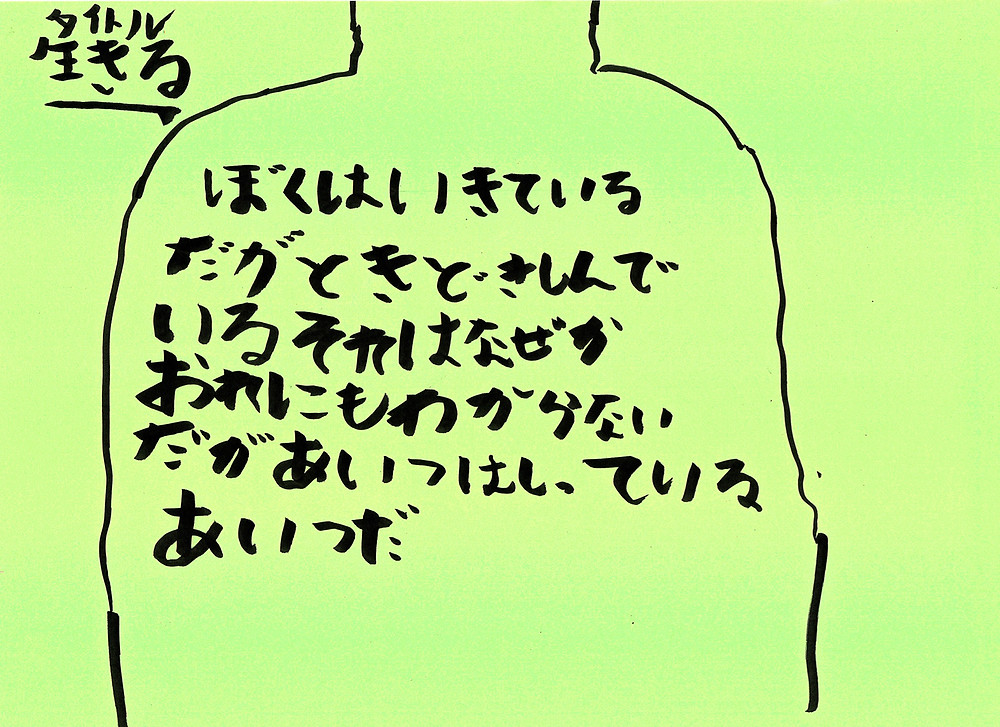 タイトル
生きる
ぼくはいきている
だがときどきしんで
いるそれはなぜか
おれにもわからない
だがあいつはしっている
あいつだ